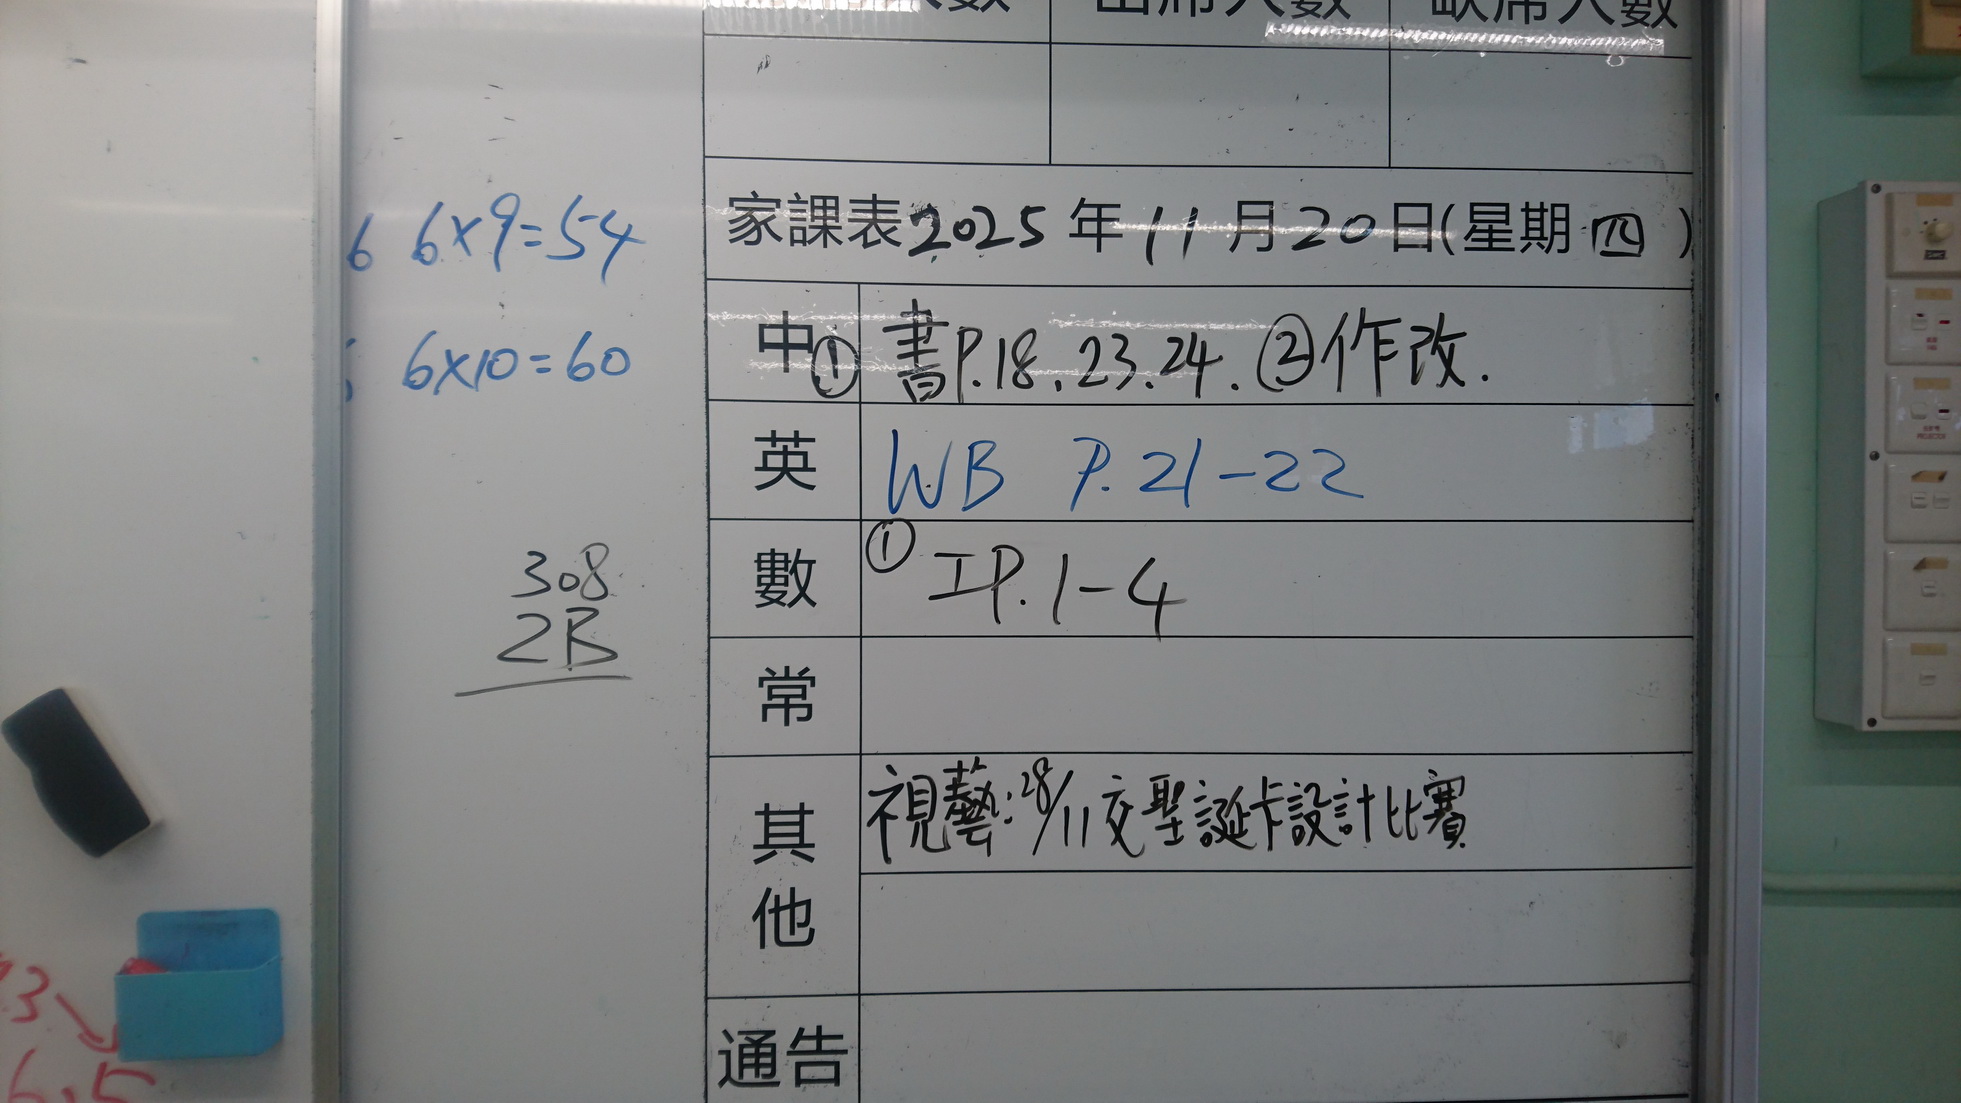 人數 出席人數 缺席人數
家課表2025年11月20日(星期四)
中 ①書P.18、23、24. ②作改.
英 WB P.21-22
數 ①工P.1-4
常
其他 視藝:28/11交聖誕卡設計比賽
通告
6 6x9=54
6x10=60
308
2B
3
6.5